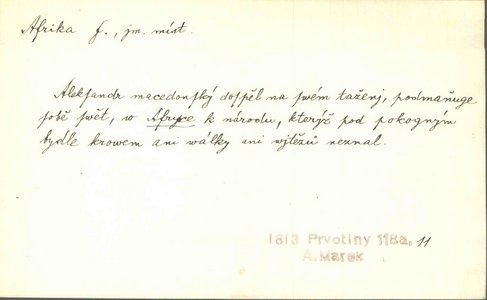 Afrika f., jm. míst.
Aleksandr macedonſký doſpěl na ſwém taženj, podmaňuge
ſobě ſwět, w Afryce k národu, kterýž pod pokogným
bydle krowem ani wálky ani wjtězů neznal.
1813 Prvotiny 118a, 11
A. Marek